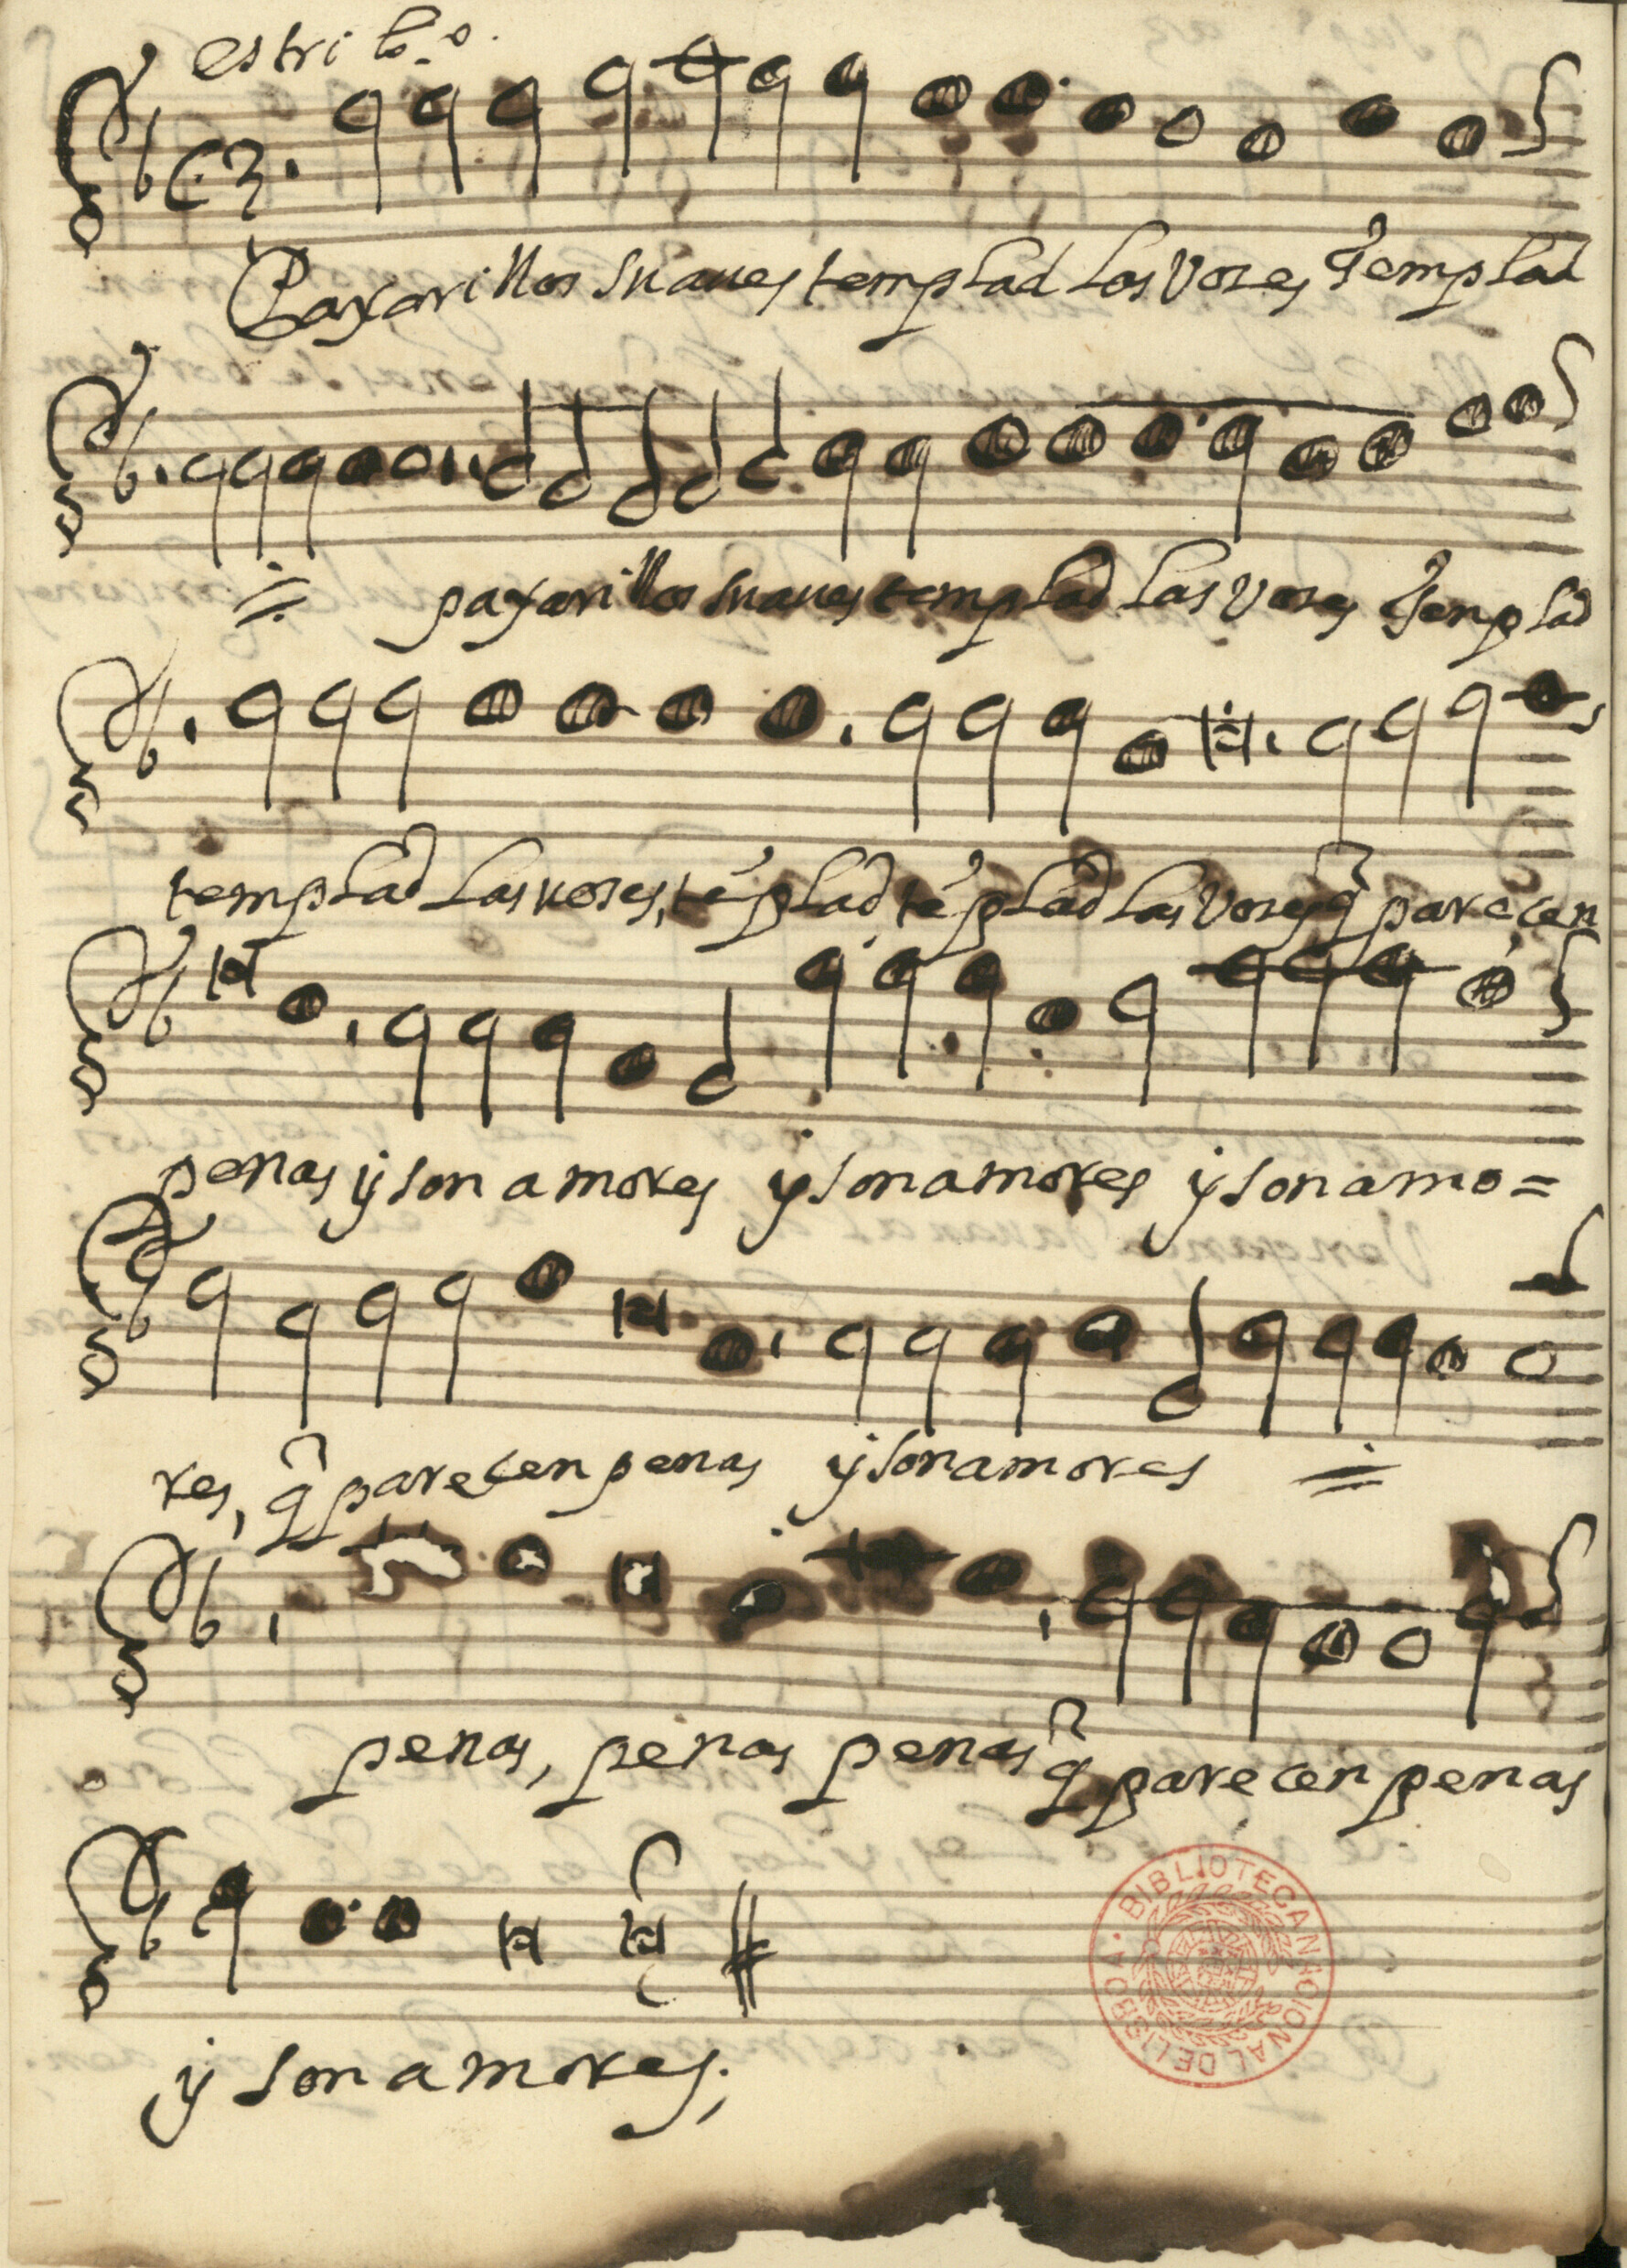 estribo.
Paxarillos suaues templad las vozes Templad
paxarillos suaues templad las vozes Templad
templad las vozes, tẽplad tẽplad las vozes q̃ parecen
penas y son amores y son amores y son amo=
res, q̃ parecen penas y son amores
penas, penas penas q̃ parecen penas
y son amores;
BIBLIOTECA NACIONAL DE LISBOA